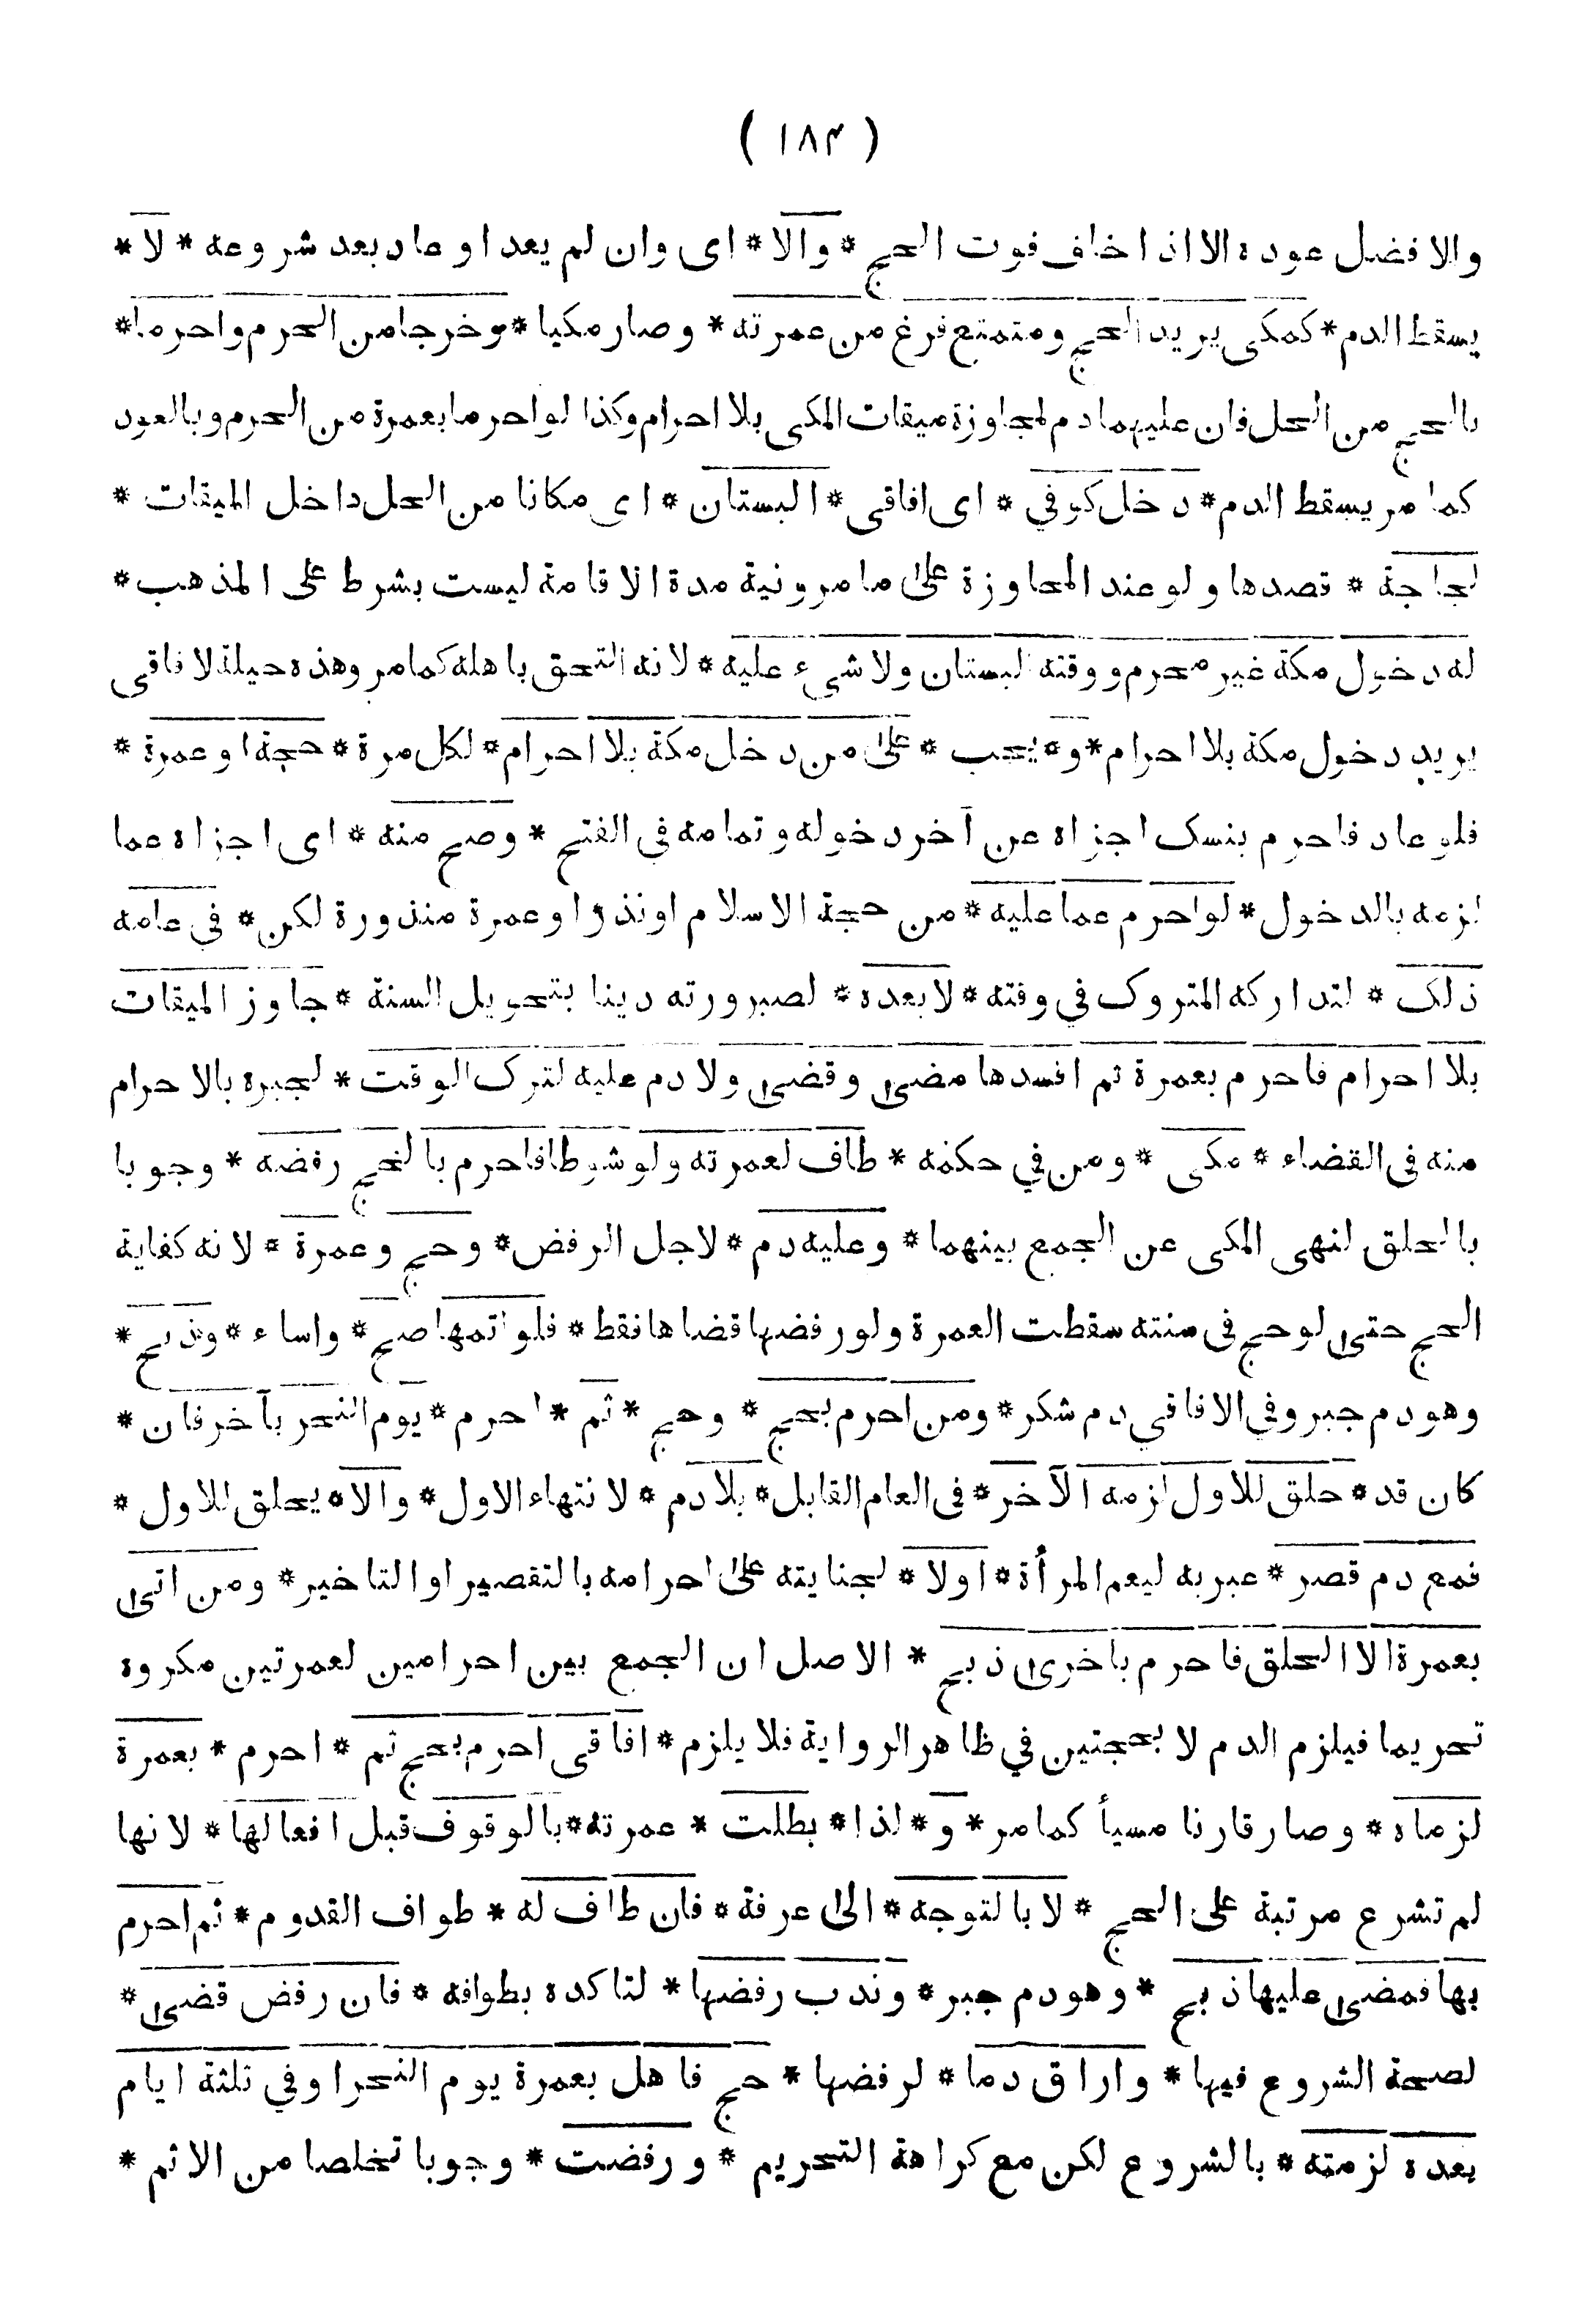 ( ١٨٣ )
والافضل عوده الا اذا خاف فوت الحج * والا * اى وان لم يعد او عاد بعد شروعه * لا *
يسقط الدم * كمكى يريد الحج ومتمتع فرغ من عمرته * وصار مكيا * وخرجا من الحرم واحرما *
بالحج من الحل فان عليهما دم لمجاوزة ميقات المكى بلا احرام وكذا لو احرما بعمرة من الحرم وبالعود
كما مر يسقط الدم * دخل كوفي * اى افاقى * البستان * اى مكانا من الحل داخل الميقات *
لحاجة * قصدها ولو عند المجاوزة على ما مر ونية مدة الاقامة ليست بشرط على المذهب *
له دخول مكة غير محرم ووقته البستان ولا شىء عليه * لانه التحق باهله كما مر وهذه حيلة لافاقى
يريد دخول مكة بلا احرام * و * يجب * على من دخل مكة بلا احرام * لكل مرة * حجة او عمرة *
فلو عاد فاحرم بنسك اجزاه عن آخر دخوله وتمامه فى الفتح * وصح منه * اى اجزاه عما
لزمه بالدخول * لو احرم عما عليه * من حجة الاسلام او نذر او عمرة منذورة لكن * فى عامه
ذلك * لتداركه المتروك في وقته * لا بعده * لصيرورته دينا بتحويل السنة * جاوز الميقات
بلا احرام فاحرم بعمرة ثم افسدها مضى وقضى ولا دم عليه لترك الوقت * لجبره بالاحرام
منه فى القضاء * مكى * ومن في حكمه * طاف لعمرته ولو شوطا فاحرم بالحج رفضه * وجوبا
بالحلق لنهى المكى عن الجمع بينهما * وعليه دم * لاجل الرفض * وحج وعمرة * لانه كفاية
الحج حتى لو حج فى سنته سقطت العمرة ولو رفضها قضاها فقط * فلو اتمها صح * واساء * وذبح *
وهو دم جبر وفي الافاقي دم شكر * ومن احرم بحج * وحج * ثم * احرم * يوم النحر بآخر فان *
كان قد * حلق للاول لزمه الآخر * فى العام القابل * بلا دم * لانتهاء الاول * والا * يحلق للاول *
فمع دم قصر * عبر به ليعم المرأة * اولا * لجنايته على احرامه بالتقصير او التاخير * ومن اتى
بعمرة الا الحلق فاحرم باخرى ذبح * الاصل ان الجمع بين احرامين لعمرتين مكروه
تحريما فيلزم الدم لا بحجتين في ظاهر الرواية فلا يلزم * افاقى احرم بحج ثم * احرم * بعمرة
لزماه * وصار قارنا مسيأ كما مر * و * لذا * بطلت * عمرته * بالوقوف قبل افعالها * لانها
لم تشرع مرتبة على الحج * لا بالتوجه * الى عرفة * فان طاف له * طواف القدوم * ثم احرم
بها فمضى عليها ذبح * وهو دم جبر * وندب رفضها * لتاكده بطوافه * فان رفض قضى *
لصحة الشروع فيها * واراق دما * لرفضها * حج فاهل بعمرة يوم النحر او في ثلثة ايام
بعده لزمته * بالشروع لكن مع كراهة التحريم * ورفضت * وجوبا تخلصا من الاثم *